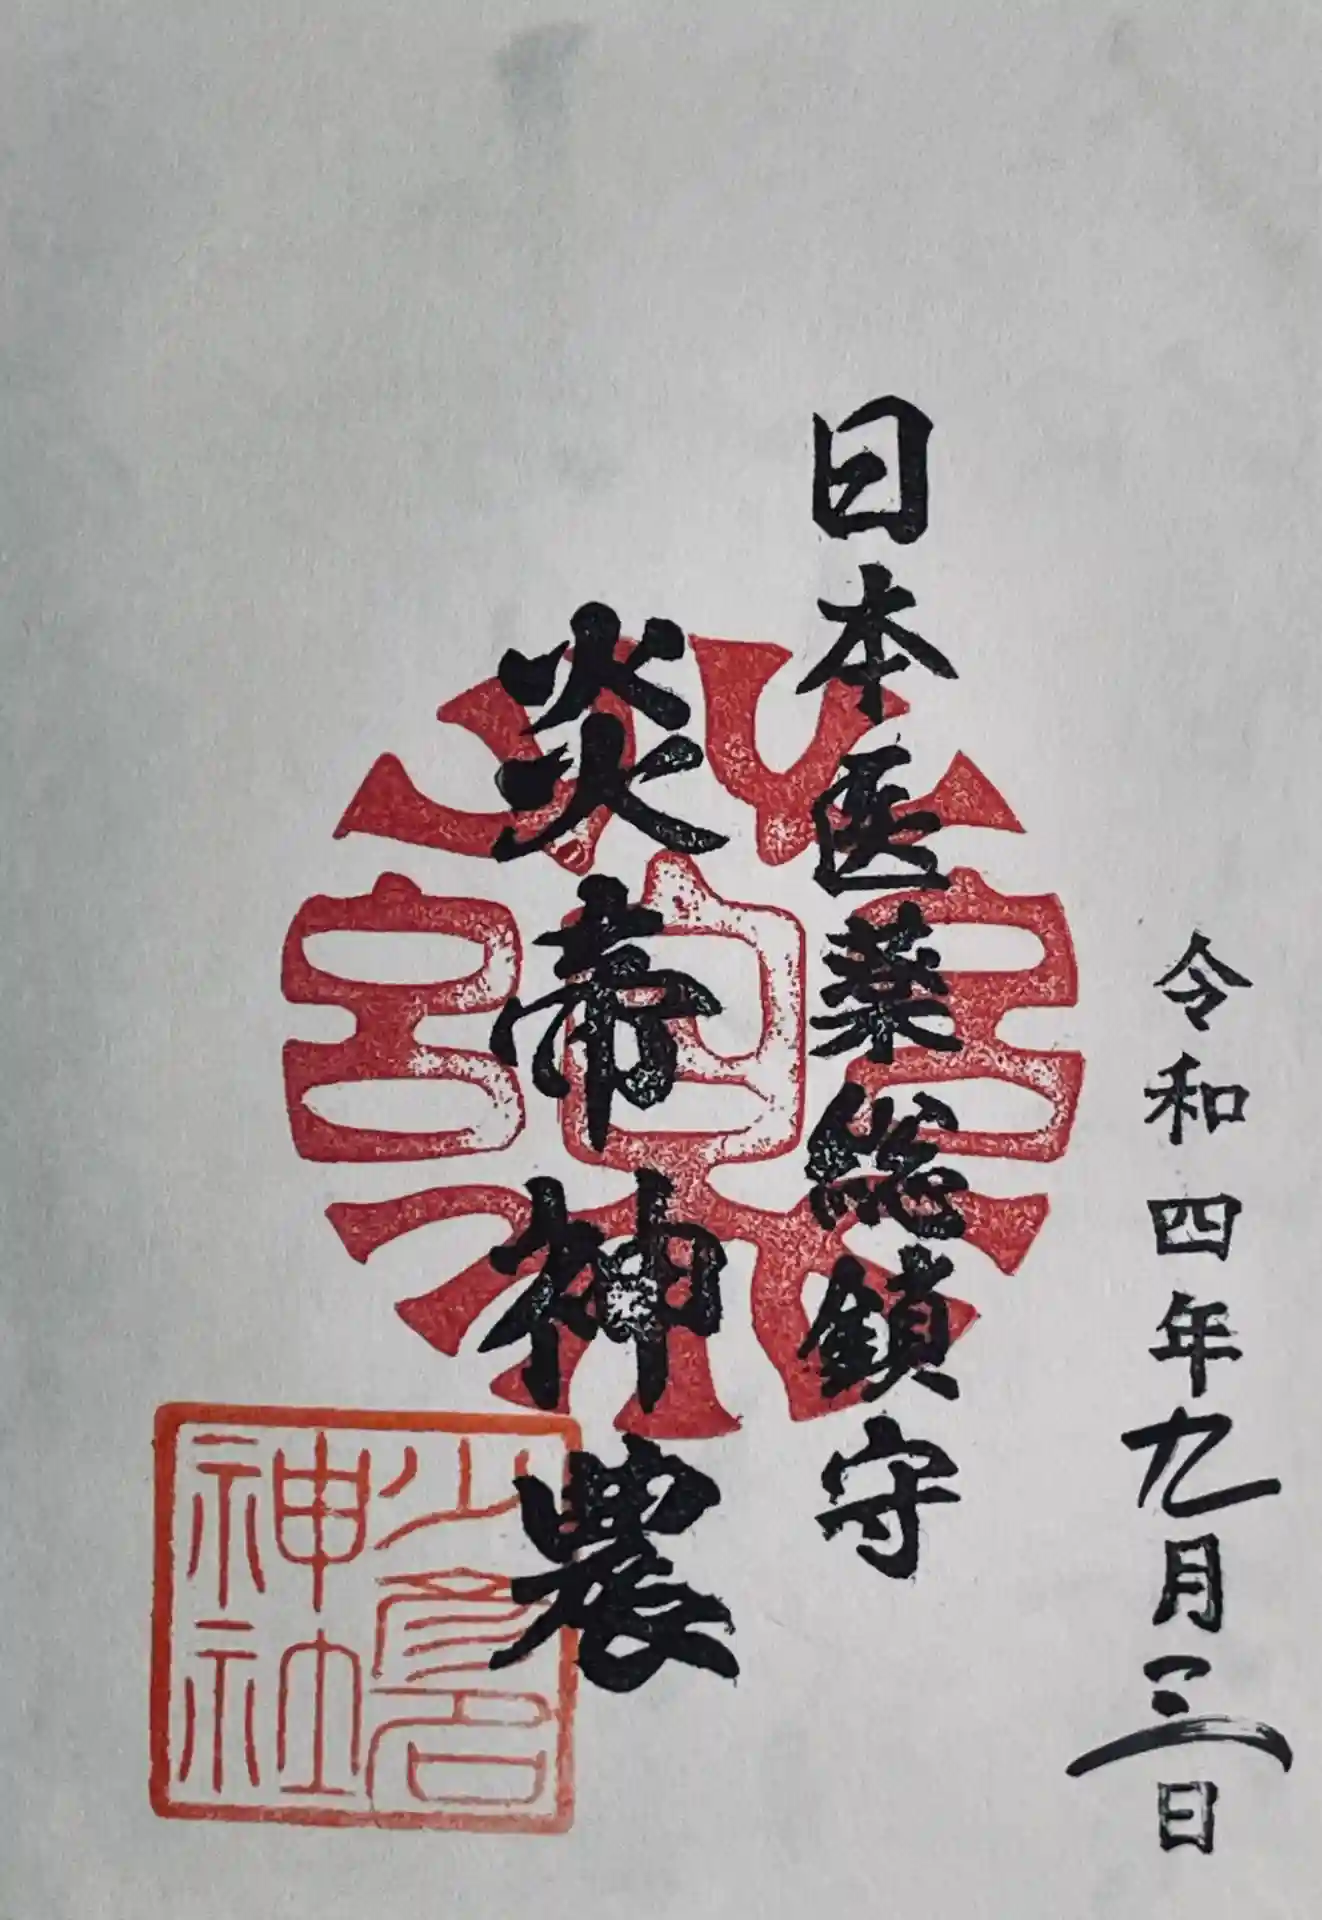 令和四年九月三日
日本医薬総鎮守
炎帝神農
少彦名
神社